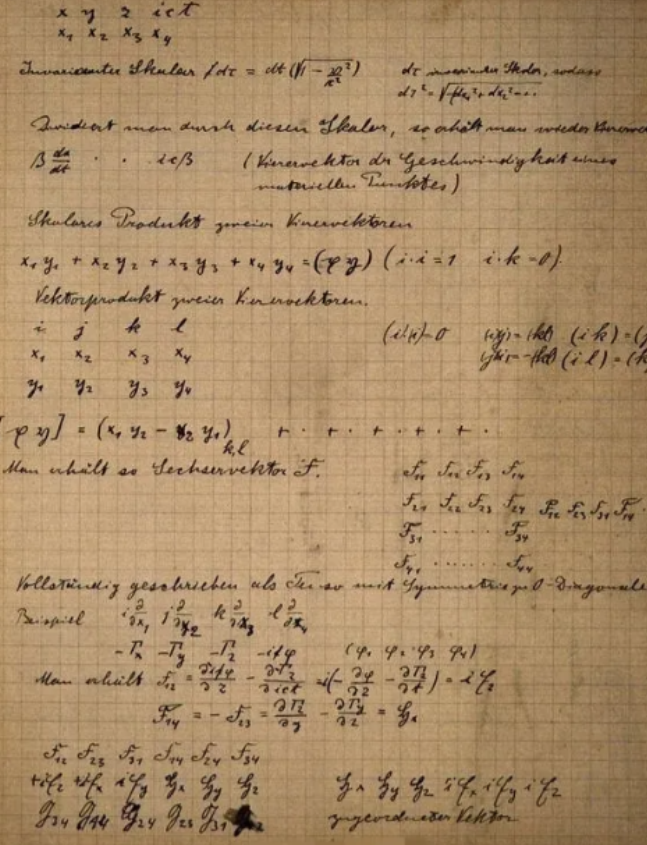 x y z ict
x₁ x₂ x₃ x₄
Invarianter Skalar dτ = dt (√1 − 𝔴²/c²)
dτ invarianter Skalar, sodass
dτ² = √−(dx₁² + dx₂² − ..
Dividiert man durch diesen Skalar, so erhält man wieder
β dx/dt · · icβ (Vierervektor der Geschwindigkeit eines
materiellen Punktes)
Skalares Produkt zweier Vierervektoren
x₁ y₁ + x₂ y₂ + x₃ y₃ + x₄ y₄ = (φ y) (i·i = 1 i·k = 0).
Vektorprodukt zweier Vierervektoren.
i j k l
x₁ x₂ x₃ x₄
y₁ y₂ y₃ y₄
(i i) = 0 (ij) = (kl) (ik) = (
(ji) = −(kl) (il) = (k
φ y] = (x₁ y₂ − x₂ y₁)k,l + · + · + · + · + ·
Man erhält so Sechservektor F.
F₁₁ F₁₂ F₁₃ F₁₄
F₂₁ F₂₂ F₂₃ F₂₄ F₁₂ F₂₃ F₃₁ F₁₄
F₃₁ ······ F₃₄
F₄₁ ······ F₄₄
Vollständig geschrieben als Tensor mit Symmetrie 0-Diagonale
Beispiel i ∂/∂x₁ j ∂/∂x₂ k ∂/∂x₃ l ∂/∂x₄
−Γx −Γy −Γz −iφ (φ₁ φ₂ φ₃ φ₄)
Man erhält F₁₂ = ∂iφ/∂z − ∂Γz/∂ict = i(−∂φ/∂z − ∂Γz/∂t) = i ℰz
F₁₄ = −F₂₃ = ∂Γz/∂y − ∂Γy/∂z = ℌx
F₁₂ F₂₃ F₃₁ F₁₄ F₂₄ F₃₄
+iℰz +iℰx iℰy ℌx ℌy ℌz
ℌx ℌy ℌz iℰx iℰy iℰz
J₃₄ J₁₄ J₂₄ J₂₃ J₃₁
zugeordneter Vektor